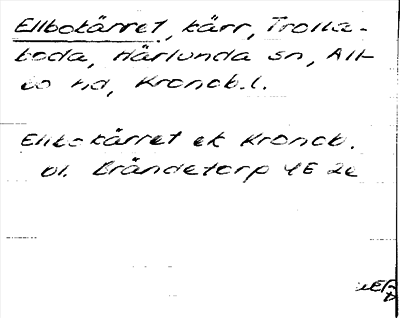 Ellbokärret, kärr, Trolla-
boda, Härlunda sn, All-
bo hd, Kronob.l.
Ellbokärret ek Kronob.
bl. Brändetorp 4E 2e